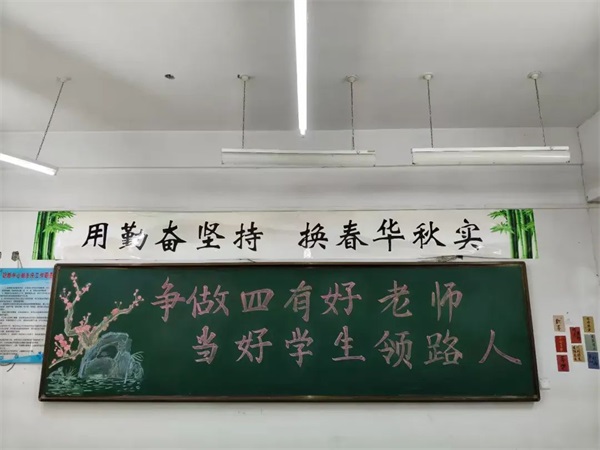 用勤奋坚持 换春华秋实
争做四有好老师
当好学生领路人